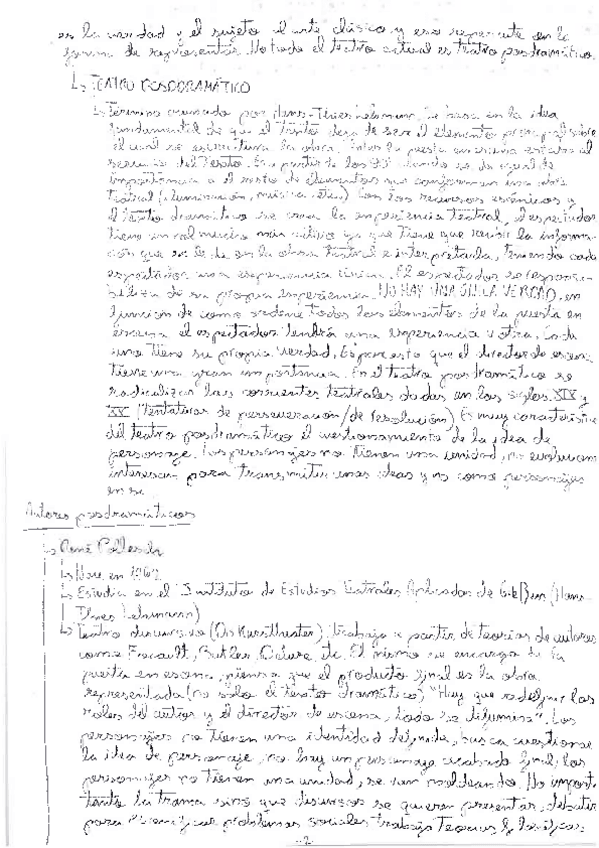 es la verdad y el sujeto el arte clásico y eso repercute en la
forma de representar. No todo el teatro actual es teatro posdramático.
↳ TEATRO POSDRAMÁTICO
↳ Término acuñado por Hans-Thies Lehmann. Se basa en la idea
fundamental de que el texto deja de ser el elemento principal sobre
el cual se escribía la obra. Antes la puesta en escena estaba al
servicio del Texto. Es a partir de los 90 cuando se da
importancia a el resto de elementos que conforman una obra
teatral (iluminación, música, etc.) Con los recursos escénicos y
el texto dramático se crea la experiencia teatral, el espectador
tiene un rol mucho más activo ya que tiene que recibir la informa-
ción que se le da en la obra teatral e interpretarla, teniendo cada
espectador una experiencia única. El espectador se responsa-
biliza de su propia experiencia. NO HAY UNA ÚNICA VERDAD, en
función de como ordene todos los elementos de la puesta en
escena el espectador tendrá una experiencia u otra. Cada
uno tiene su propia verdad. Es por esto que el director de escena
tiene una gran importancia. En el teatro posdramático se
radicalizan las corrientes teatrales dadas en los siglos XIX y
XX (Tentativas de perseveración/de resolución) Es muy característico
del teatro posdramático el cuestionamiento de la idea de
personaje. Los personajes no tienen una unidad, no evolucionan
interesan para transmitir unas ideas y no como personajes
en si.
Autores posdramáticos
↳ René Pollesch
↳ Nace en 1962
↳ Estudia en el Instituto de Estudios Teatrales Aplicados de Gießen (Hans-
Thies Lehmann)
↳ Teatro discursivo (Diskurstheater): trabaja a partir de teorías de autores
como Foucault, Butler, etc. El mismo se encarga de la
puesta en escena, piensa que el producto final es la obra
representada (no sólo el texto dramático) "Hay que redefinir los
roles del autor y el director de escena, todo se difumina". Los
personajes no tienen una identidad definida, busca cuestionar
la idea de personaje, no hay un personaje acabado final, los
personajes no tienen una unidad, se van moldeando. No import
tanto la trama sino que discursos se quieren presentar, debatir
para problemas sociales trabaja Teorías filosóficas
-2-